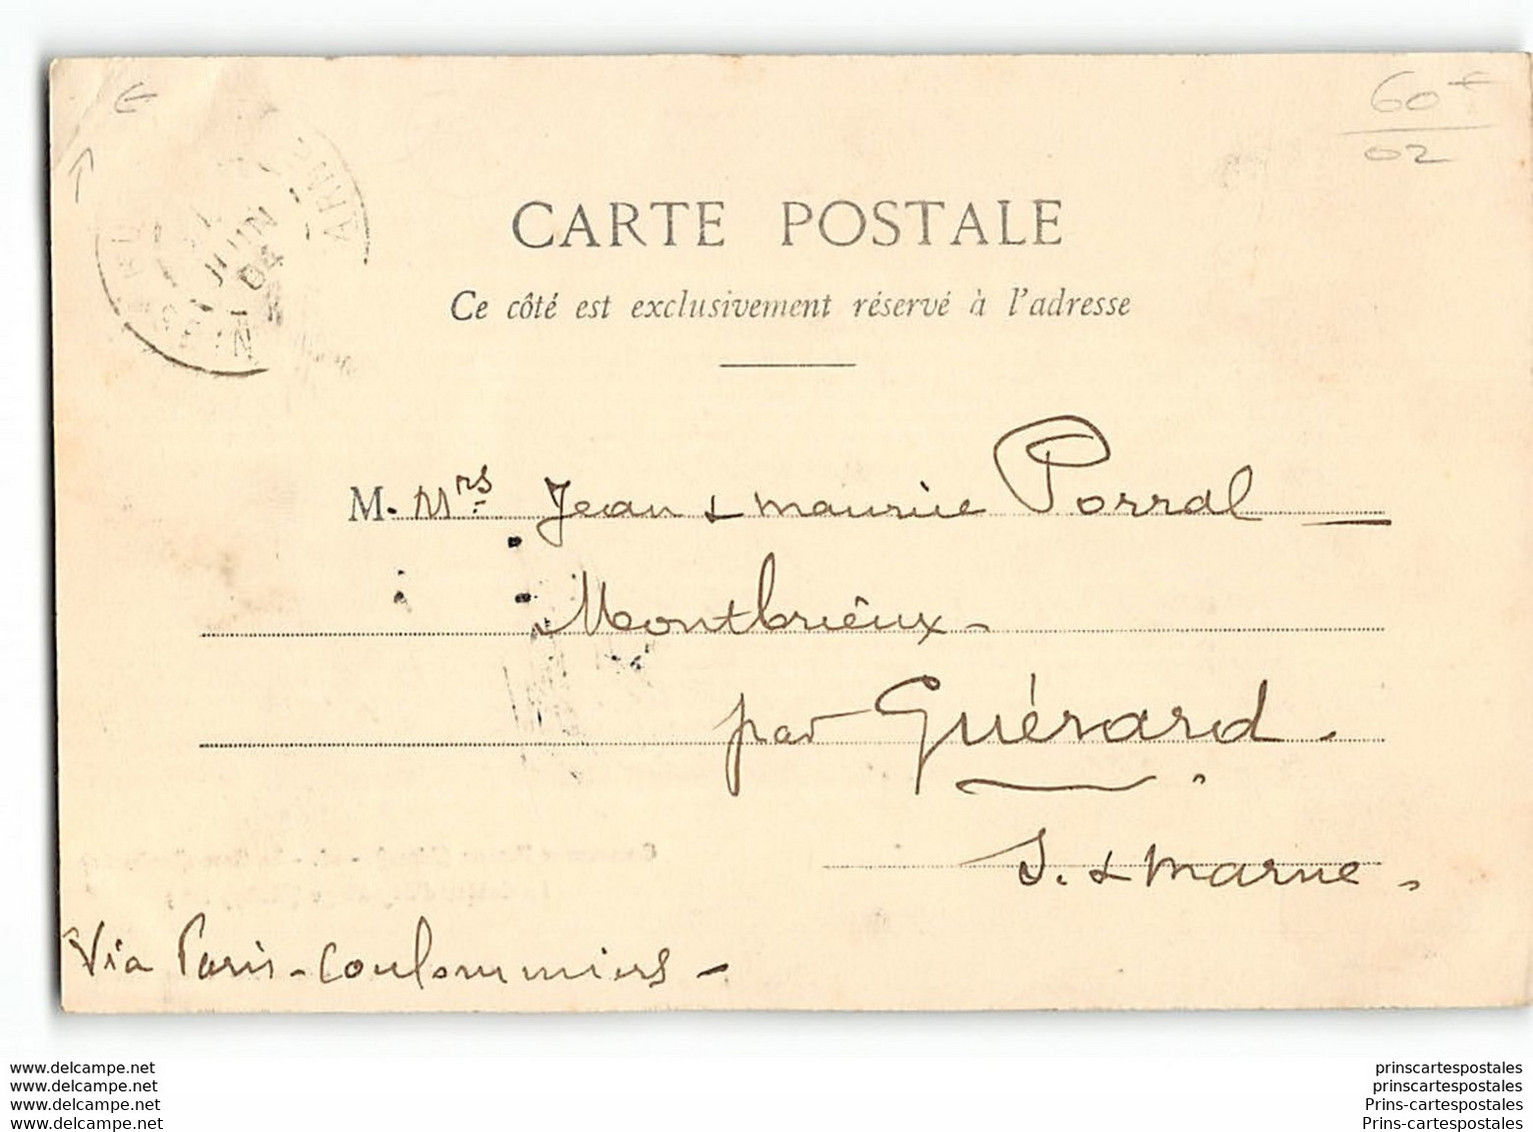 60 €
02
JUIN
04
MARNE
CARTE POSTALE
Ce côté est exclusivement réservé à l'adresse
M. Mrs Jean & Maurice Porral
Montbrieux
par Guérard.
S. & Marne.
Via Paris-Coulommiers
www.delcampe.net
www.delcampe.net
www.delcampe.net
www.delcampe.net
prinscartespostales
prinscartespostales
Prins-cartespostales
Prins-cartespostales